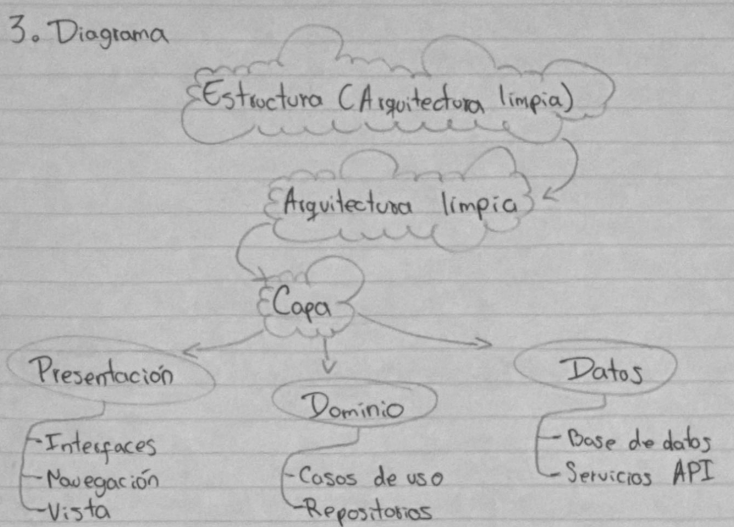 3. Diagrama
Estructura (Arquitectura limpia)
Arquitectura limpia
Capa
Presentación
Dominio
Datos
-Interfaces
-Navegación
-Vista
-Casos de uso
-Repositorios
-Base de datos
-Servicios API